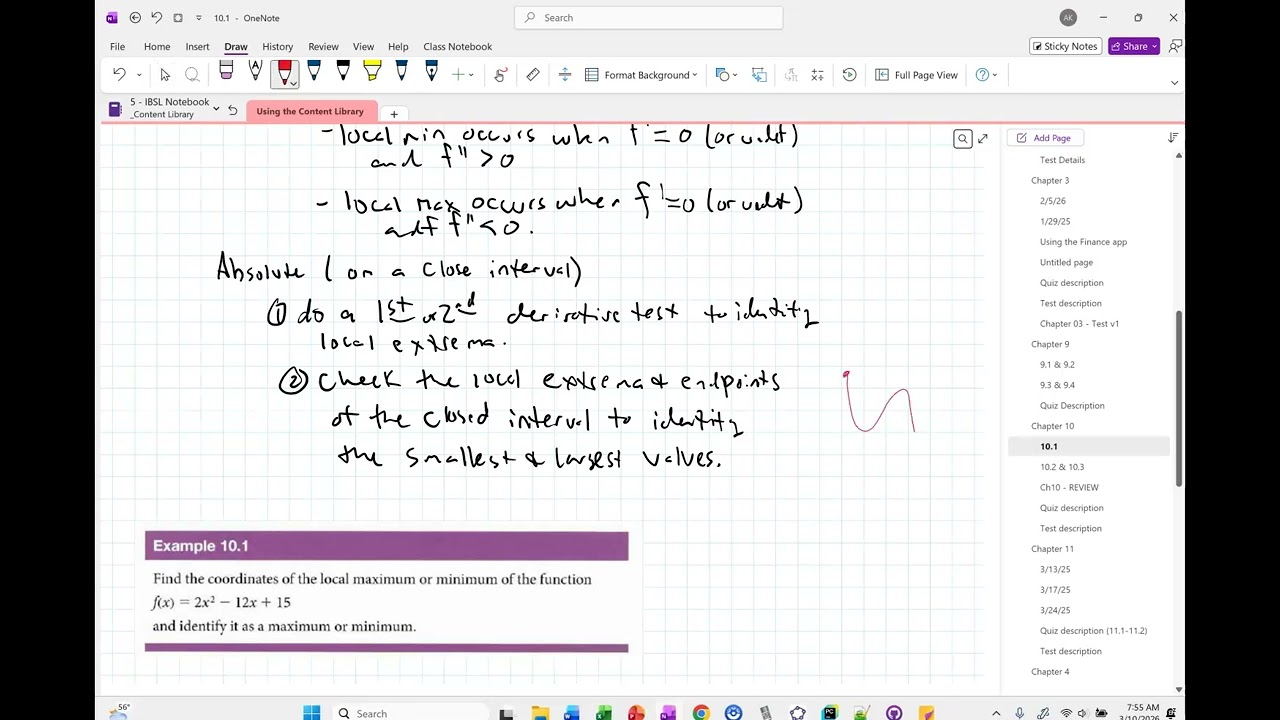 10.1 - OneNote
Search
AK
File Home Insert Draw History Review View Help Class Notebook
Sticky Notes Share
Format Background Full Page View
5 - IBSL Notebook
_Content Library
Using the Content Library
Add Page
- local min occurs when f'=0 (or undef)
and f">0
- local max occurs when f'=0 (or undef)
and f"<0.
Absolute (on a close interval)
① do a 1st or 2nd derivative test to identify
local extrema.
② Check the local extrema & endpoints
of the closed interval to identify
the smallest & largest values.
Example 10.1
Find the coordinates of the local maximum or minimum of the function
f(x) = 2x² − 12x + 15
and identify it as a maximum or minimum.
Test Details
Chapter 3
2/5/26
1/29/25
Using the Finance app
Untitled page
Quiz description
Test description
Chapter 03 - Test v1
Chapter 9
9.1 & 9.2
9.3 & 9.4
Quiz Description
Chapter 10
10.1
10.2 & 10.3
Ch10 - REVIEW
Quiz description
Test description
Chapter 11
3/13/25
3/17/25
3/24/25
Quiz description (11.1-11.2)
Test description
Chapter 4
56°
Search
7:55 AM